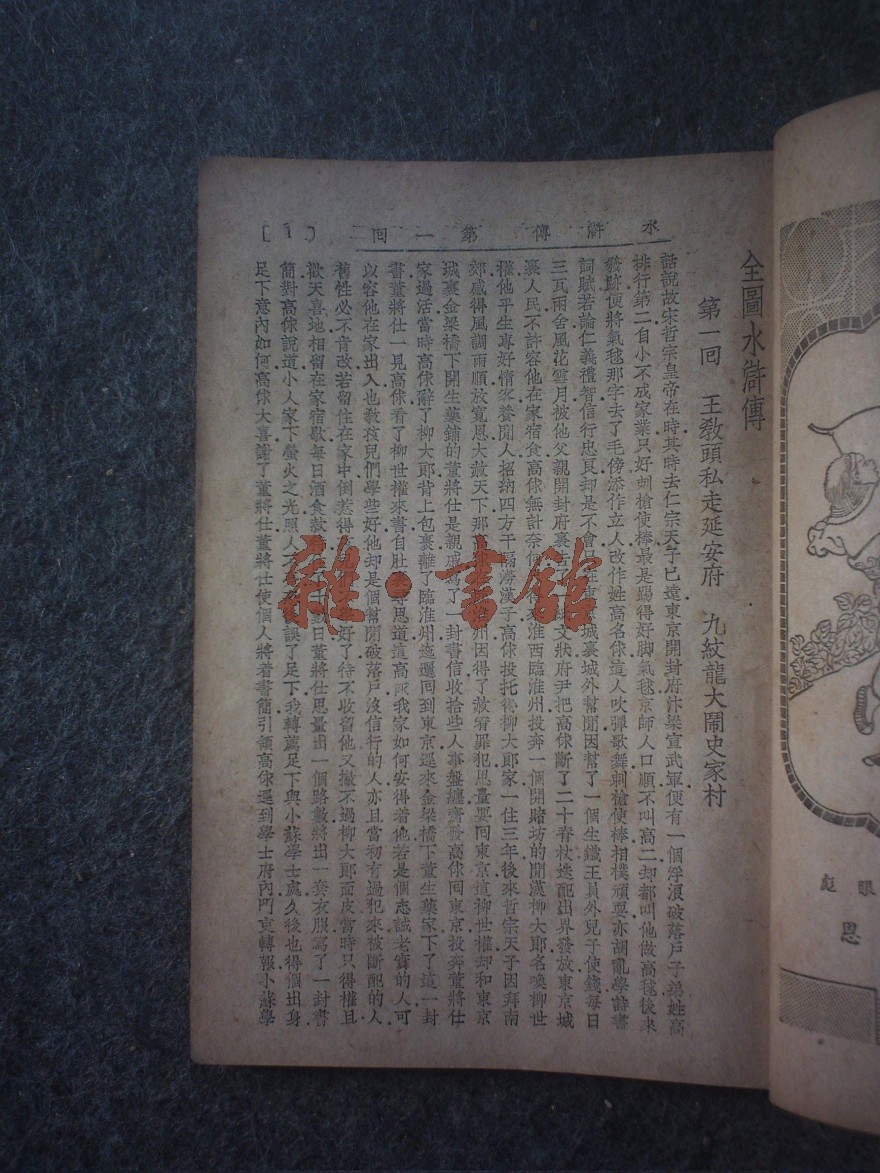 水滸傳第一回
[1]
全圖水滸傳
第一回 王教頭私走延安府 九紋龍大鬧史家村
話說故宋哲宗皇帝在時其時去仁宗天子已遠東京開封府汴梁宣武軍便有一個浮浪破落戶子弟姓高
排行第二自小不成家業只好刺槍使棒最是踢得好脚氣毬京師人口順不叫高二却都叫他做高毬後來
發跡便將氣毬那字去了毛傍添作立人改作姓高名俅這人吹彈歌舞刺槍使棒相撲頑耍亦胡亂學詩書
詞賦若論仁義禮智信行忠良却是不會只在東京城裏城外幫閒因幫了一個生鐵王員外兒子使錢每日
三瓦兩舍風花雪月被他父親開封府裏告文狀府尹把高俅斷了二十脊杖迭配出界發放東京城
裏人民不許容他在家宿食高俅無計奈何來淮西臨淮州投奔一個開賭坊的閒漢柳大郎名喚柳世
權他平生專好惜客養閒人招納四方干隔澇漢子高俅投托得柳大郎家一住三年後來哲宗天子因拜南
郊感得風調雨順放寬恩大赦天下那州因得了赦宥罪犯思量要回東京這柳世權却和東京
城裏金梁橋下開生藥鋪的董將仕是親戚寫了一封書信收拾些人事盤纏齎發高俅回東京投奔董將仕
家過活當時高俅辭了柳大郎背上包裹離了臨淮州迤邐回到東京逕來金梁橋下董生藥家下了這一封
書董將仕一見高俅看了柳世權來書自肚思道這高俅我家如何安得着他若是個志誠老實的人可
以容他在家出入也教孩兒們學些好他却是個幫閒破落戶沒信行的人亦且當初有過犯來被斷配的人
舊性必不肯改若留住在家中倒惹得好了待不收留他又撇不過柳大郎面皮當時只得權且
歡天喜地相留在家宿歇每日酒食數日董將仕思量出一個路數將出一套衣服寫了一封書
簡對高俅說道小人家下螢火之光照人不誤了足下我轉薦足下與小蘇學士處久後也得個出身
足下意內如何高俅大喜謝了董將仕董將仕使個人將着書簡引領高俅逕到學士府內門吏轉報小蘇學
眼彪
恩
雜·書館